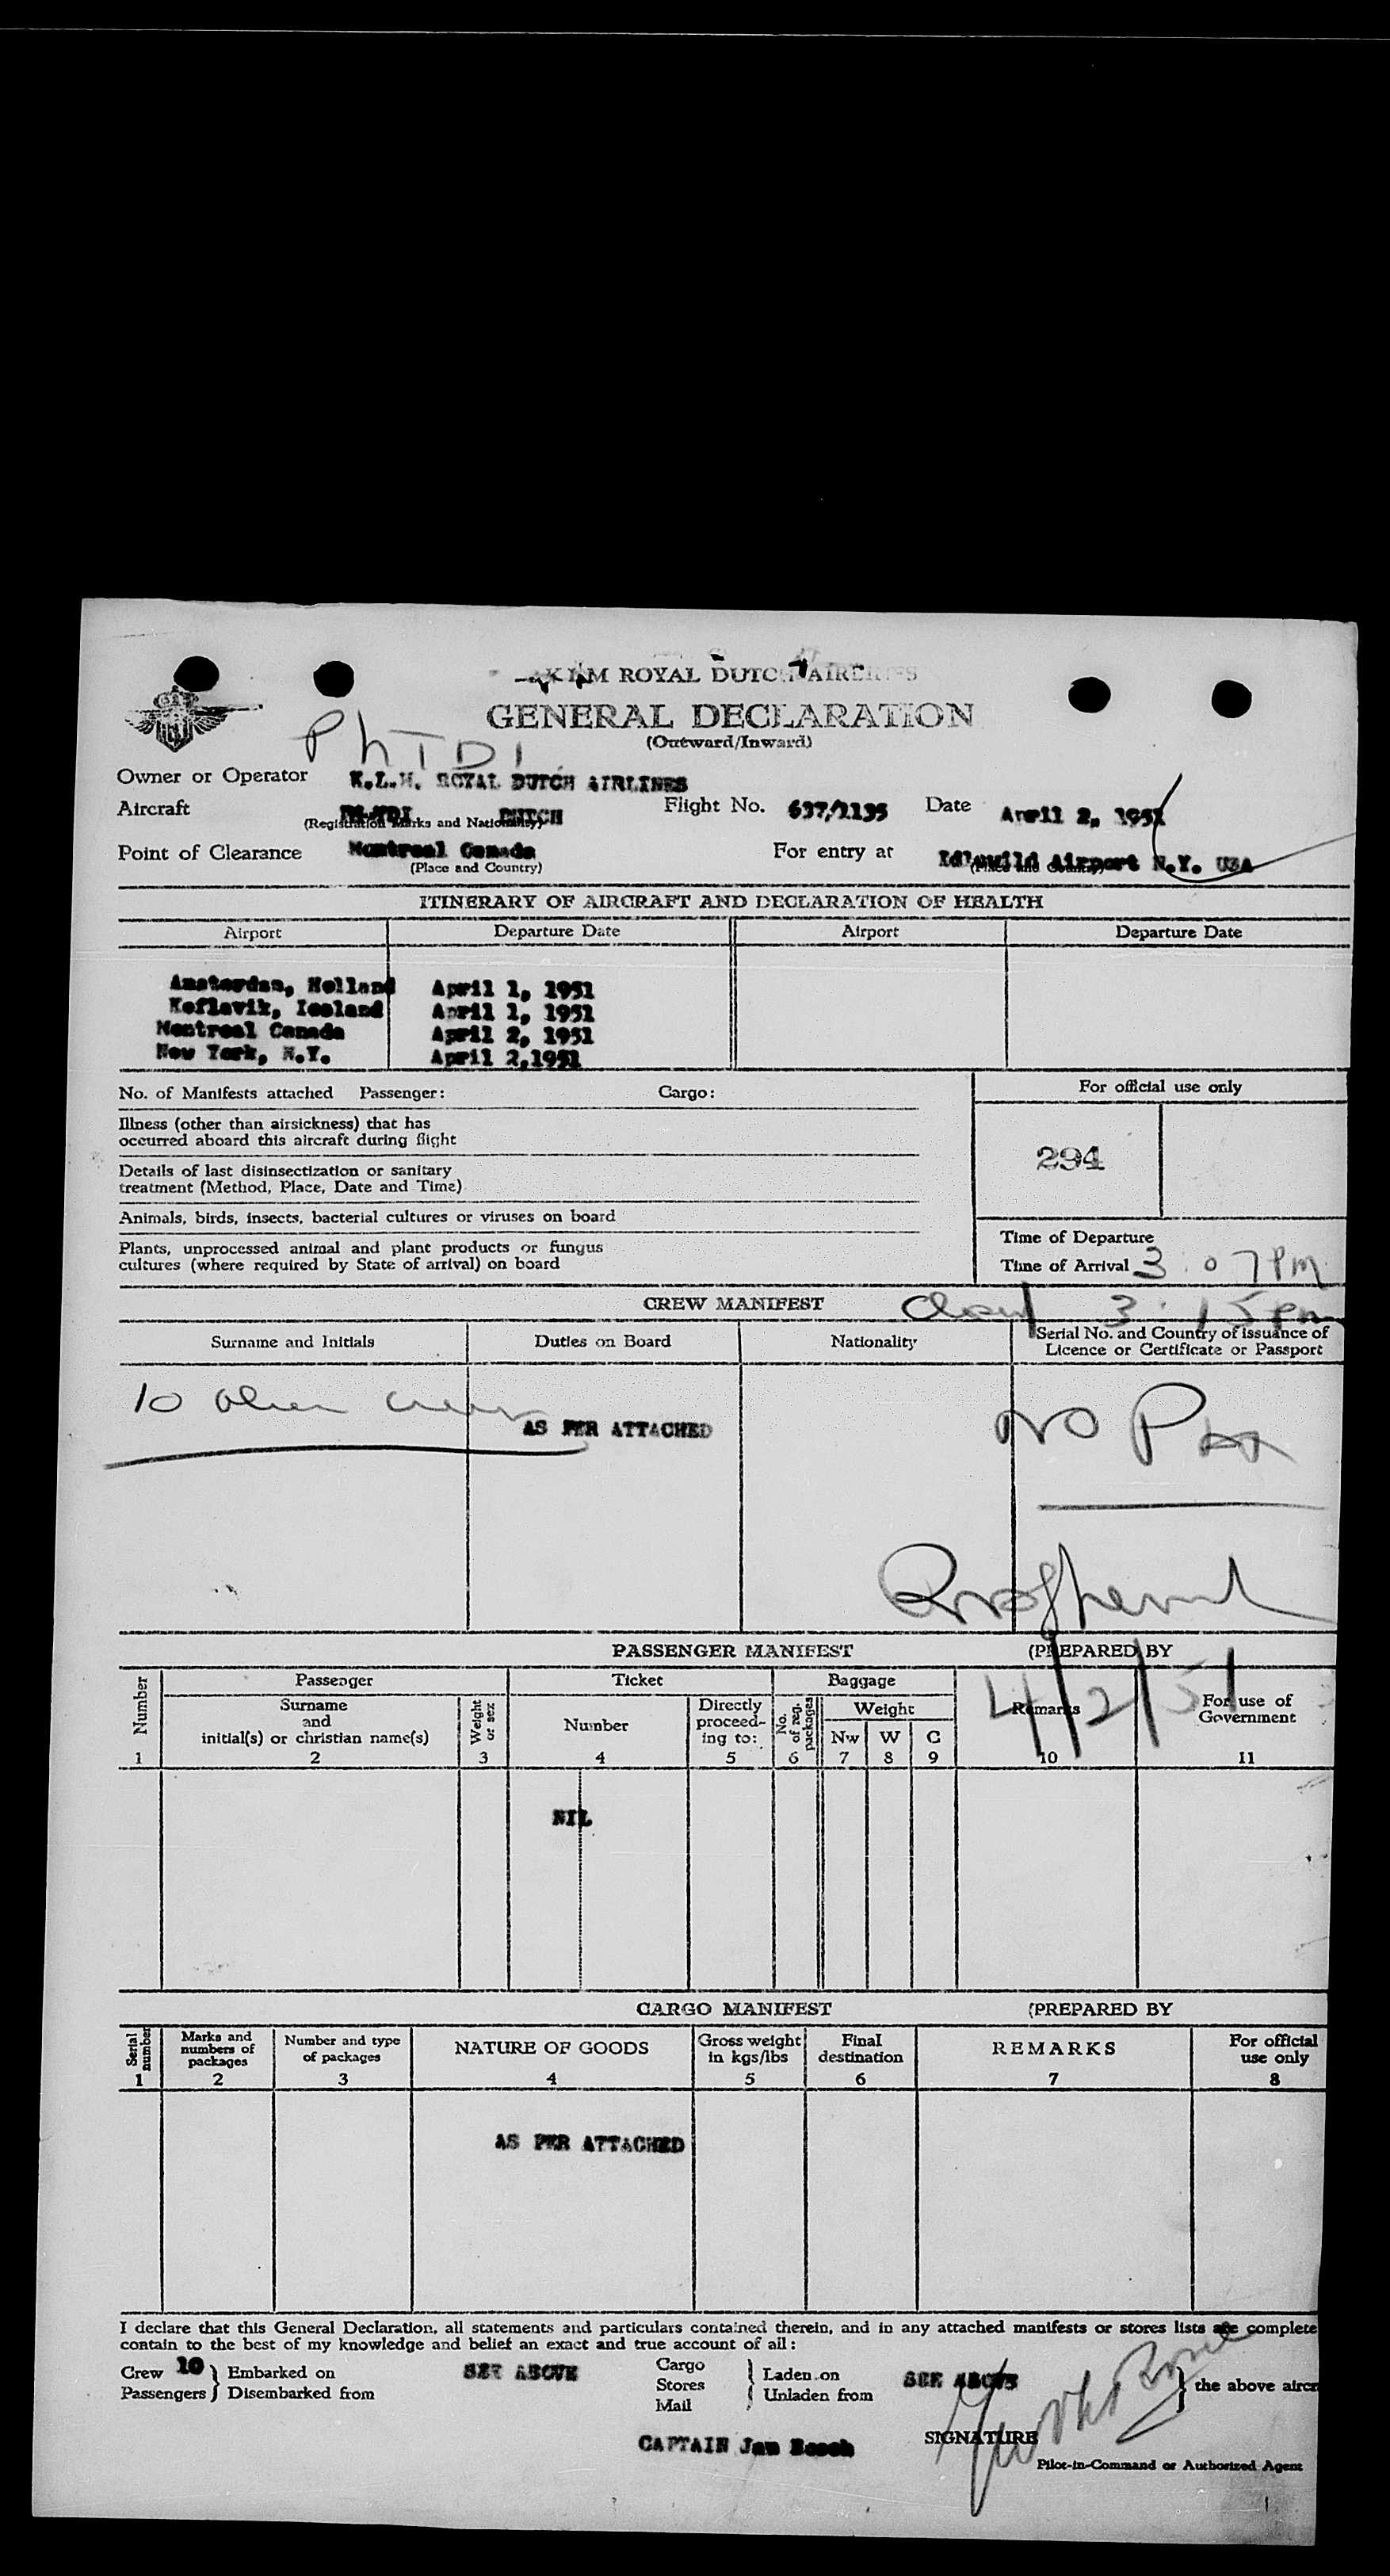 KLM ROYAL DUTCH AIRLINES
GENERAL DECLARATION
(Outward/Inward)
PhTDI
Owner or Operator K.L.M. ROYAL DUTCH AIRLINES
Aircraft PH-TDI DUTCH Flight No. 637/1135 Date April 2, 1951
(Registration Marks and Nationality)
Point of Clearance Montreal Canada For entry at Idlewild Airport N.Y. USA
(Place and Country) (Place and Country)
ITINERARY OF AIRCRAFT AND DECLARATION OF HEALTH
Airport Departure Date Airport Departure Date
Amsterdam, Holland April 1, 1951
Keflavik, Iceland April 1, 1951
Montreal Canada April 2, 1951
New York, N.Y. April 2,1951
No. of Manifests attached Passenger: Cargo: For official use only
Illness (other than airsickness) that has
occurred aboard this aircraft during flight
294
Details of last disinsectization or sanitary
treatment (Method, Place, Date and Time)
Animals, birds, insects, bacterial cultures or viruses on board
Plants, unprocessed animal and plant products or fungus
cultures (where required by State of arrival) on board
Time of Departure
Time of Arrival 3.07 PM
CREW MANIFEST 3.15 pm
Surname and Initials Duties on Board Nationality Serial No. and Country of issuance of
Licence or Certificate or Passport
10 alien crew AS PER ATTACHED NO Pax
PASSENGER MANIFEST (PREPARED BY
4/2/51
Number Passenger Ticket Baggage Remarks For use of
Government
Surname
and
initial(s) or christian name(s) Weight
or sex Number Directly
proceed-
ing to: No.
of reg.
packages Weight
Nw W C
1 2 3 4 5 6 7 8 9 10 11
NIL
CARGO MANIFEST (PREPARED BY
Serial
number Marks and
numbers of
packages Number and type
of packages NATURE OF GOODS Gross weight
in kgs/lbs Final
destination REMARKS For official
use only
1 2 3 4 5 6 7 8
AS PER ATTACHED
I declare that this General Declaration, all statements and particulars contained therein, and in any attached manifests or stores lists are complete
contain to the best of my knowledge and belief an exact and true account of all:
Crew 10 Embarked on SEE ABOVE Cargo Laden on SEE ABOVE
Passengers Disembarked from Stores Unladen from the above aircr
Mail
CAPTAIN Jan SIGNATURE
Pilot-in-Command or Authorized Agent